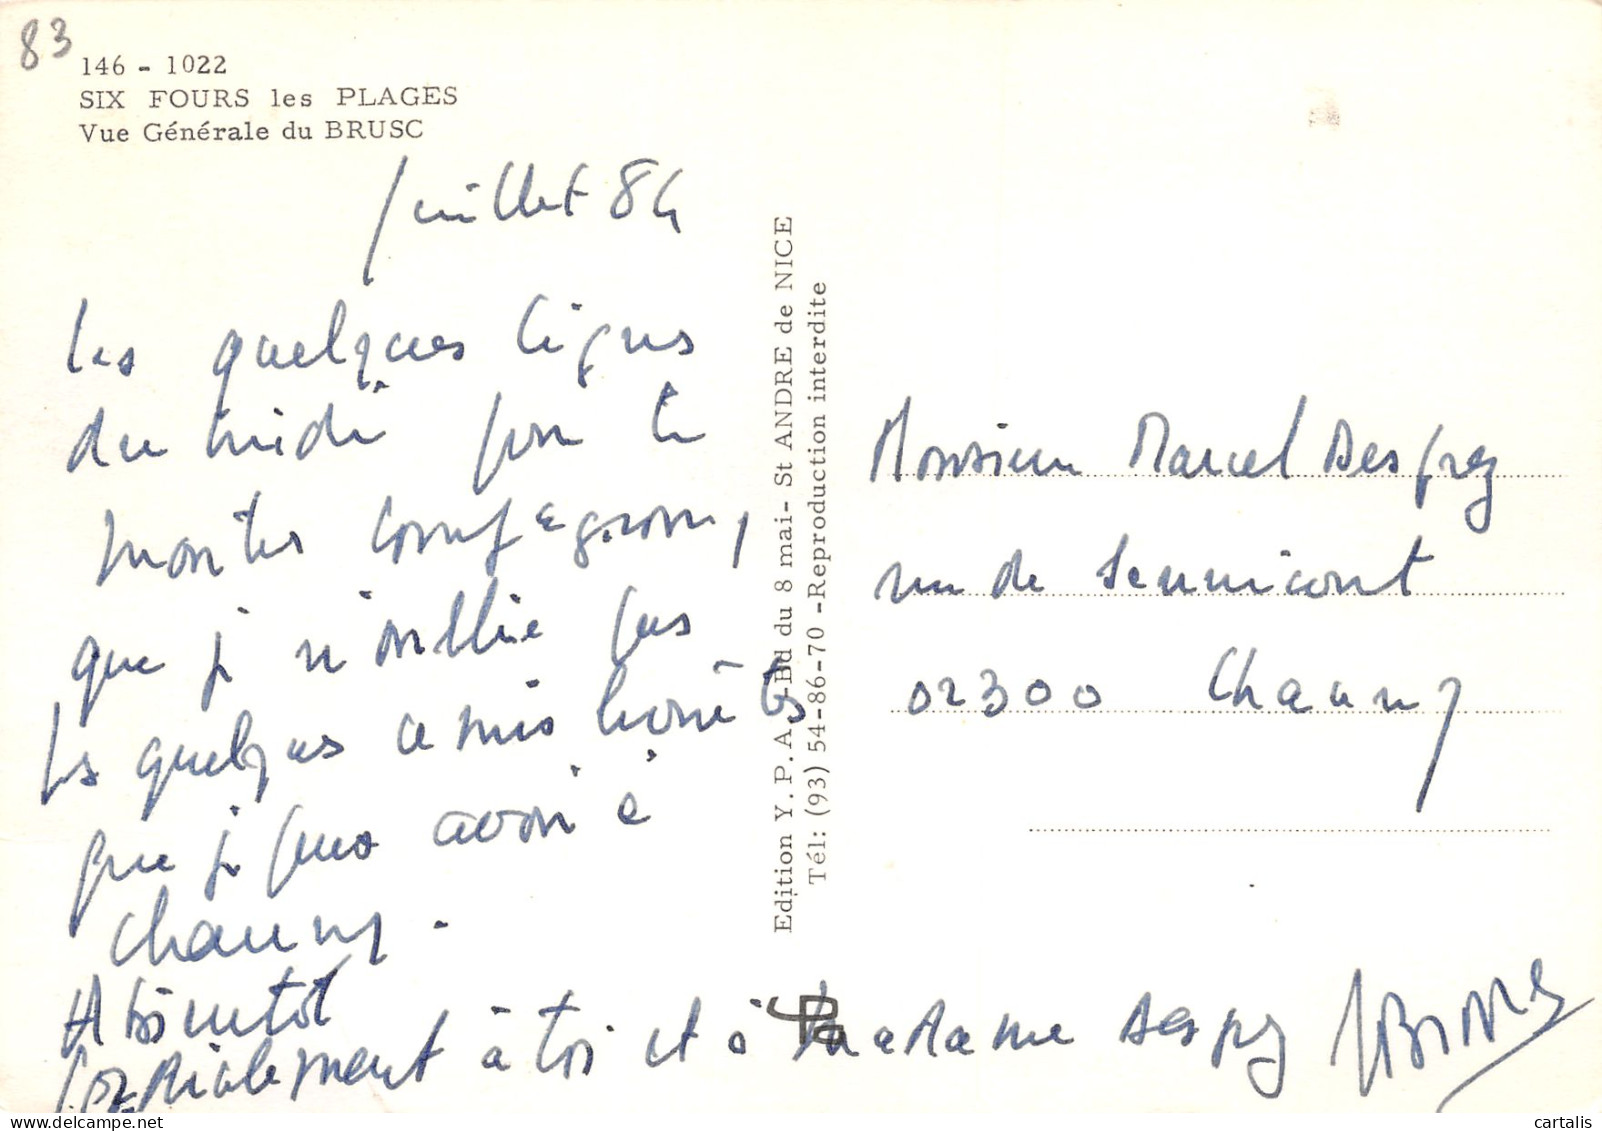 83
146 - 1022
SIX FOURS les PLAGES
Vue Générale du BRUSC
Juillet 84
Ces quelques lignes
du midi pour te
montrer compagnon,
que je n'oublie pas
les quelques amis honnêtes
que je puis avoir à
Chauny.
A bientôt
Cordialement à toi et à Madame Desprez
Edition Y. P. A.-Bd du 8 mai- St ANDRE de NICE
Tél: (93) 54-86-70 -Reproduction interdite
Monsieur Marcel Desprez
rue de Senicourt
02300 Chauny
cartalis